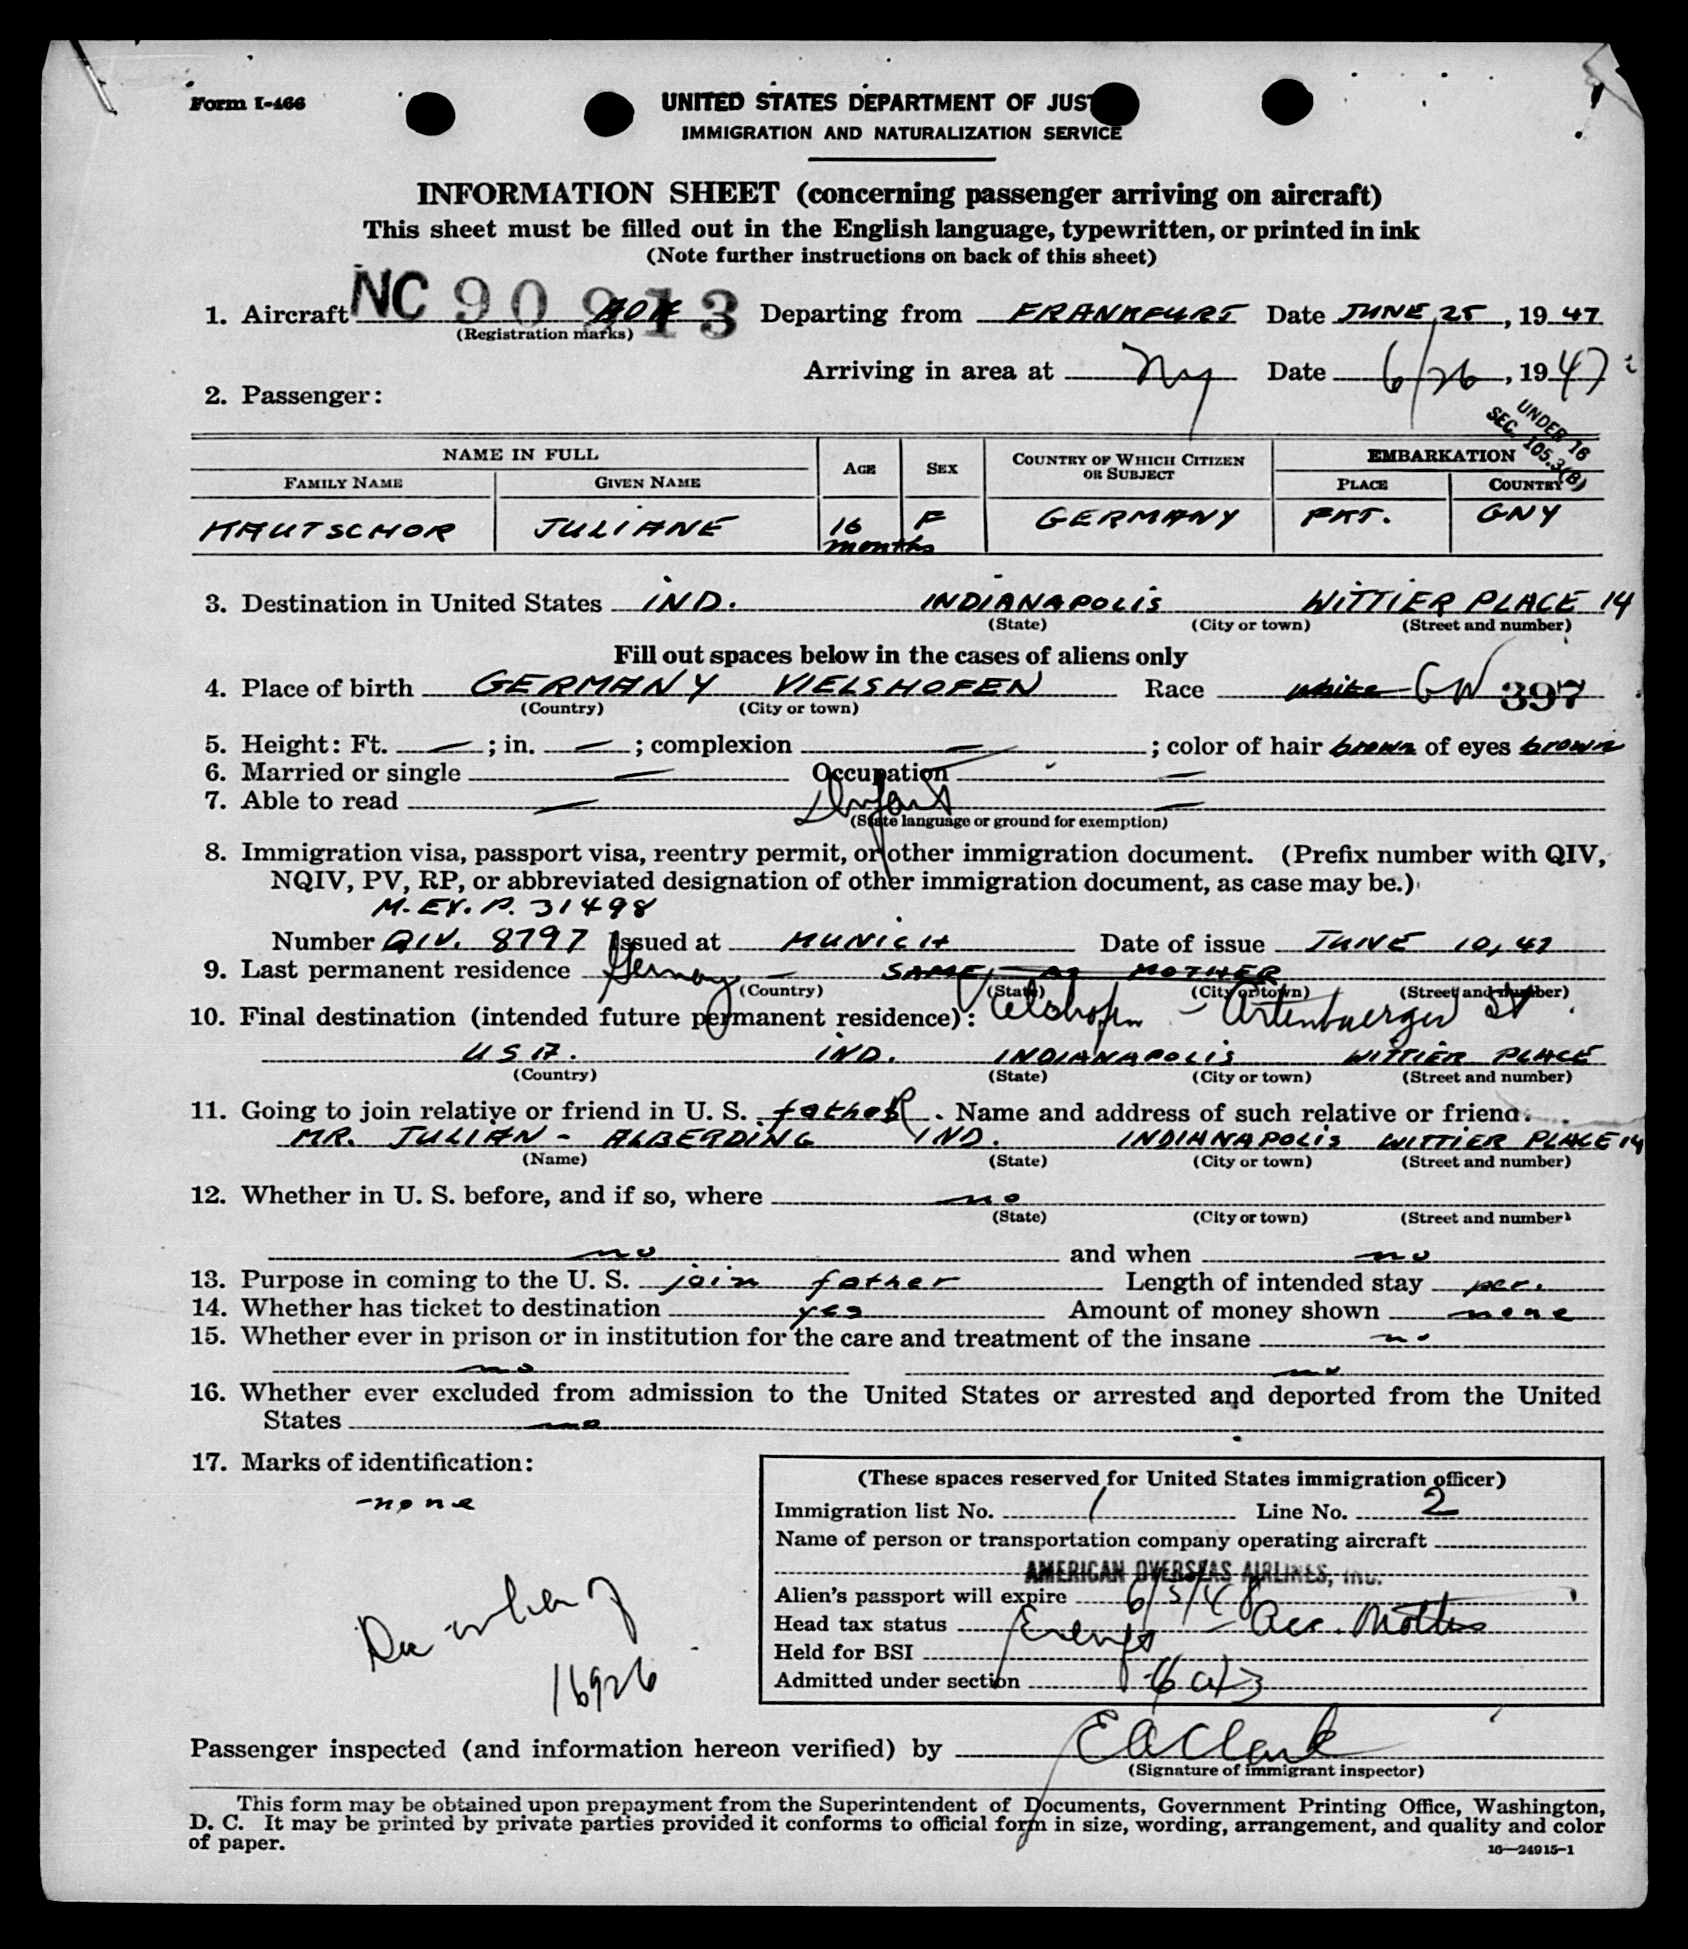 Form I-466
UNITED STATES DEPARTMENT OF JUST
IMMIGRATION AND NATURALIZATION SERVICE
INFORMATION SHEET (concerning passenger arriving on aircraft)
This sheet must be filled out in the English language, typewritten, or printed in ink
(Note further instructions on back of this sheet)
1. Aircraft NC 90913 AOA Departing from FRANKFURT Date JUNE 25, 1947
(Registration marks)
Arriving in area at NY Date 6/26, 1947
2. Passenger:
UNDER 16
SEC. 105.3(B)
NAME IN FULL AGE SEX COUNTRY OF WHICH CITIZEN OR SUBJECT EMBARKATION
FAMILY NAME GIVEN NAME PLACE COUNTRY
HAUTSCHOR JULIANE 16 months F GERMANY FKT. GNY
3. Destination in United States IND. INDIANAPOLIS WITTIER PLACE 14
(State) (City or town) (Street and number)
Fill out spaces below in the cases of aliens only
4. Place of birth GERMANY VIELSHOFEN Race white GW 397
(Country) (City or town)
5. Height: Ft. — ; in. — ; complexion — ; color of hair brown of eyes brown
6. Married or single — Occupation —
7. Able to read — Infant —
(State language or ground for exemption)
8. Immigration visa, passport visa, reentry permit, or other immigration document. (Prefix number with QIV,
NQIV, PV, RP, or abbreviated designation of other immigration document, as case may be.)
M. EX. P. 31498
Number QIV. 8797 Issued at MUNICH Date of issue JUNE 10, 47
9. Last permanent residence Germany — SAME, — AS MOTHER
(Country) (State) (City or town) (Street and number)
10. Final destination (intended future permanent residence): Vielshofen — St
USA. IND. INDIANAPOLIS WITTIER PLACE
(Country) (State) (City or town) (Street and number)
11. Going to join relative or friend in U. S. father. Name and address of such relative or friend.
MR. JULIAN - ALBERDING IND. INDIANAPOLIS WITTIER PLACE 14
(Name) (State) (City or town) (Street and number)
12. Whether in U. S. before, and if so, where no
(State) (City or town) (Street and number)
no and when no
13. Purpose in coming to the U. S. join father Length of intended stay per.
14. Whether has ticket to destination yes Amount of money shown none
15. Whether ever in prison or in institution for the care and treatment of the insane no
no no
16. Whether ever excluded from admission to the United States or arrested and deported from the United
States no
17. Marks of identification:
none
16926
(These spaces reserved for United States immigration officer)
Immigration list No. 1 Line No. 2
Name of person or transportation company operating aircraft
AMERICAN OVERSEAS AIRLINES, INC.
Alien's passport will expire 6/5/48
Head tax status Exempt — Acc. Mother
Held for BSI
Admitted under section 6(a)3
Passenger inspected (and information hereon verified) by EA Clark
(Signature of immigrant inspector)
This form may be obtained upon prepayment from the Superintendent of Documents, Government Printing Office, Washington,
D. C. It may be printed by private parties provided it conforms to official form in size, wording, arrangement, and quality and color
of paper.
16—24915-1